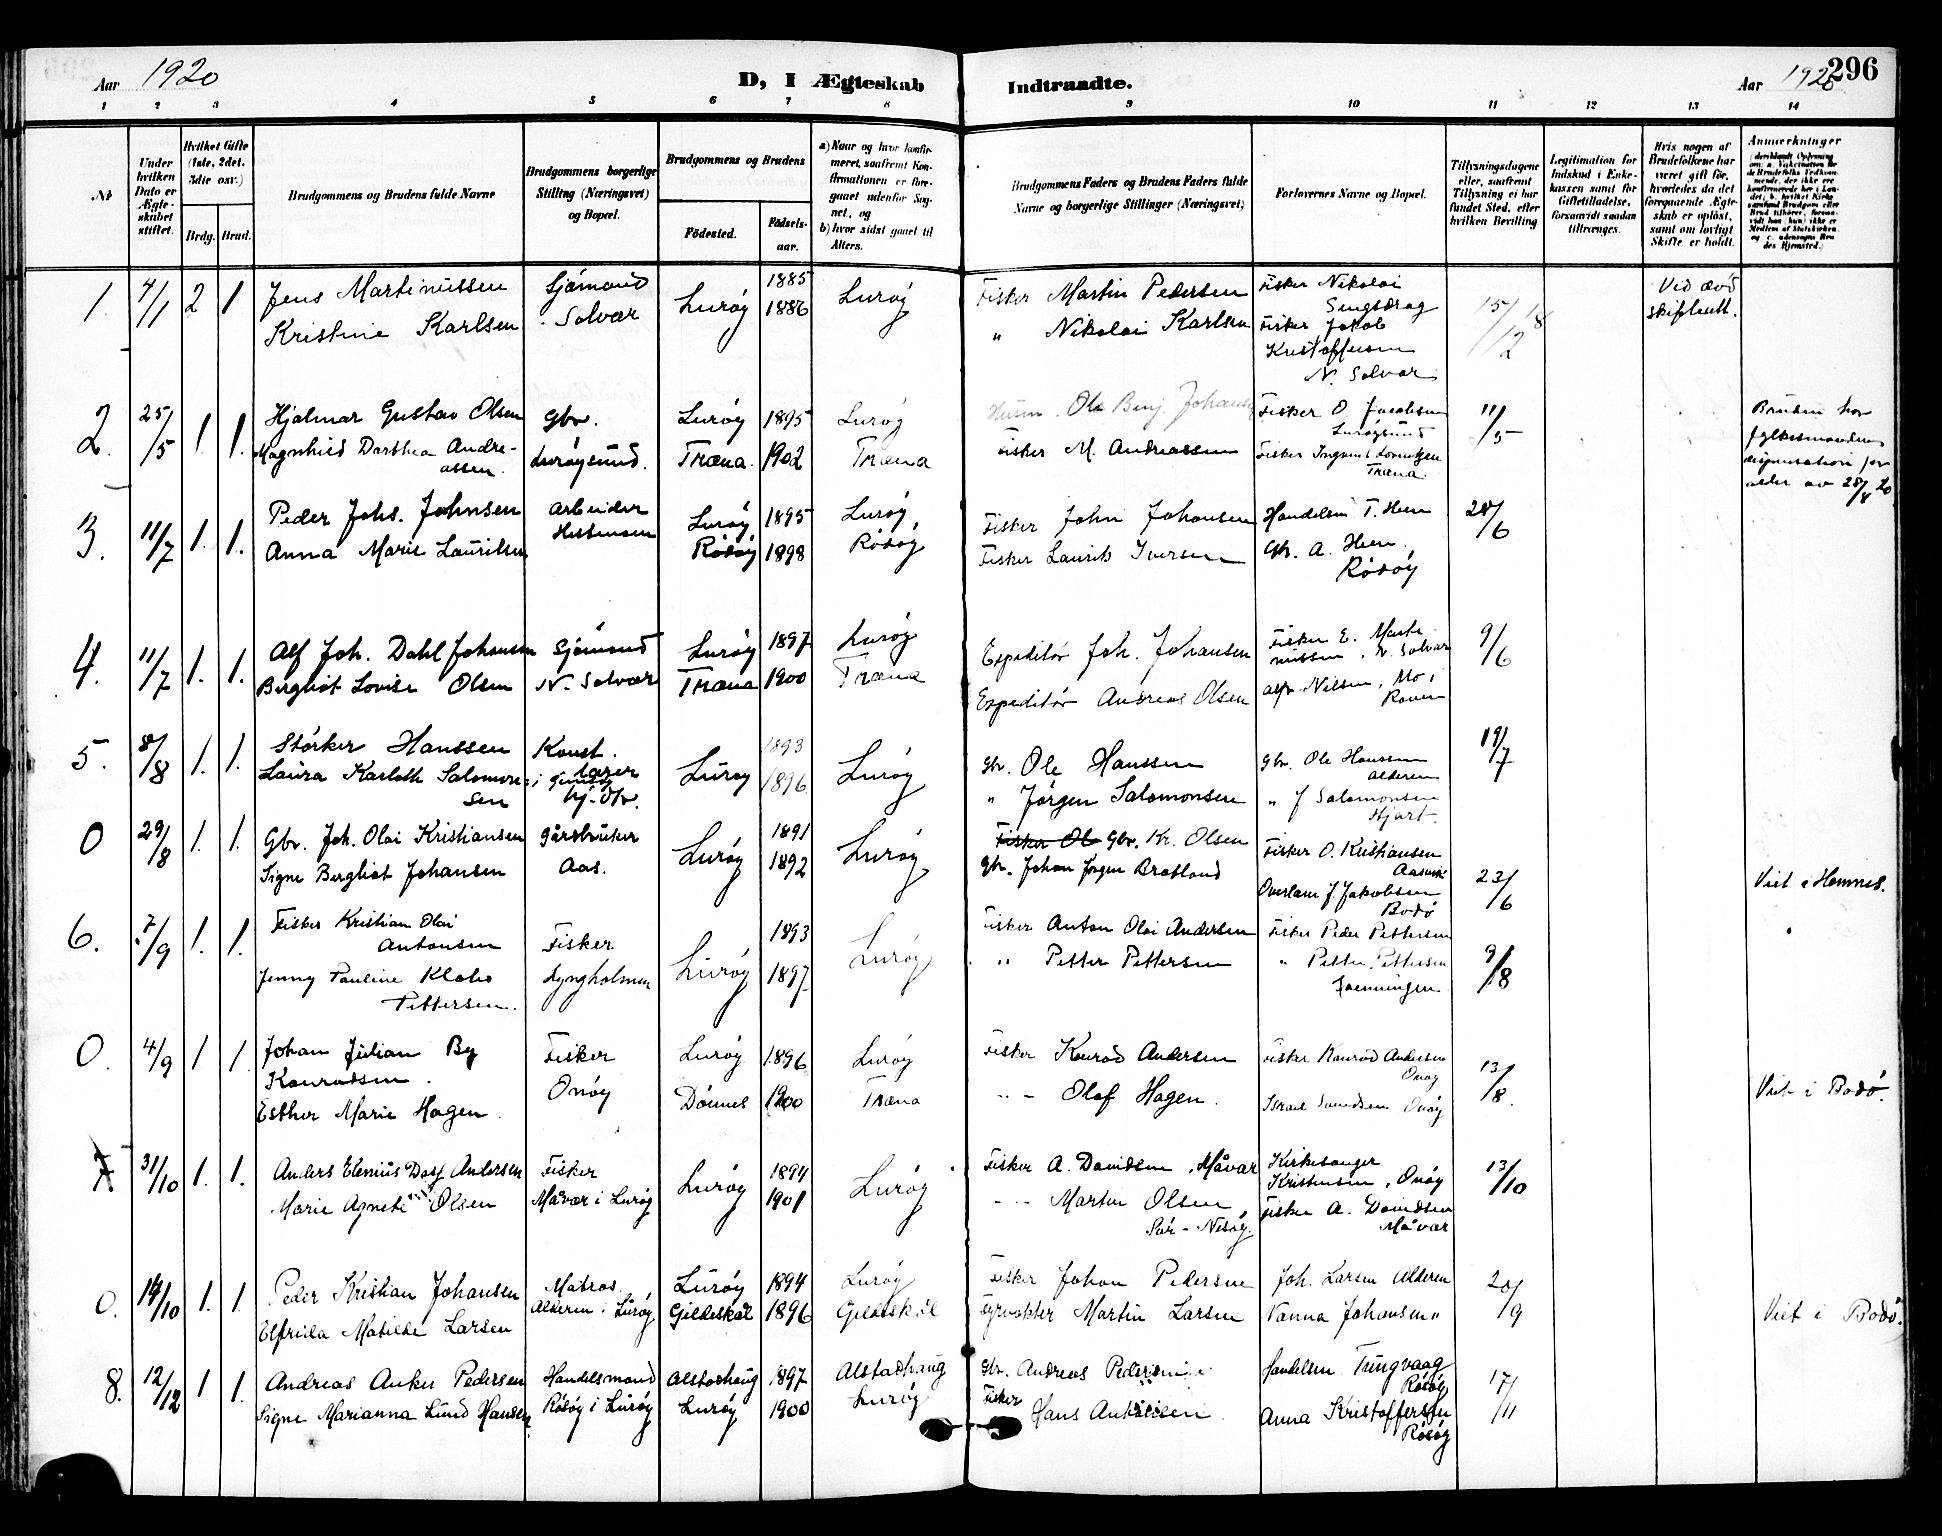 Aar 1920
D, I Ægteskab Indtraadte.
Aar 1920
296
1 2 3 4 5 6 7 8 9 10 11 12 13 14
No
Under hvilken Dato er Ægteskabet stiftet.
Hvilket Gifte (1ste, 2det, 3die osv.)
Brdg. Brud.
Brudgommens og Brudens fulde Navne
Brudgommens borgerlige Stilling (Næringsvei) og Bopæl.
Brudgommens og Brudens
Födested. Födselsaar.
a) Naar og hvor konfirmeret, saafremt Konfirmationen er foregaaet udenfor Sognet, og
b) hvor sidst gaaet til Alters.
Brudgommens Faders og Brudens Faders fulde Navne og borgerlige Stillinger (Næringsvei)
Forlovernes Navne og Bopæl.
Tillysningsdagene eller, saafremt Tillysning ei har fundet Sted, efter hvilken Bevilling
Legitimation for Indskud i Enkekassen samt for Giftetilladelse, forsaavidt saadan tiltrænges.
Hvis nogen af Brudefolkene har været gift før, hvorledes da det foregaaende Ægteskab er opløst, samt om lovligt Skifte er holdt.
Anmærkninger
1. 4/1 2 1 Jens Martinussen Sjömand Lurøy 1885 Lurøy Fisker Martin Pedersen Fisker Nikolai
Kristine Karlsen Solvær 1886 " Nikolai Karlsen Fisker Jakob
Kristoffersen
N. Solvær
15/12 18
Ved død
skifte
2. 25/5 1. 1. Hjalmar Gustav Olsen Gbr. Lurøy 1895 Lurøy Ole Benj. Johansen Fisker O. Jacobsen
Lurøysund
Magnhild Dorthea Andreassen Lurøysund. Træna. 1902 Træna Fisker M. Andreassen Fisker Lorentzen
Træna.
11/5
Bruden har
fylkesmandens
dispensation for
alder av 28/4 20
3. 11/7 1. 1. Peder Johs. Johnsen Arbeider Lurøy 1895 Lurøy Fisker John Johansen Handelsm T. Heen
Anna Marie Lauritsen Hestmoen Rödöy 1898 Rödöy Fisker Laurits Iversen Gbr. A. Heen.
Rödöy
28/6
4. 11/7 1. 1. Alf Joh. Dahl Johansen Sjömand Lurøy 1897 Lurøy Expeditör Joh. Johansen Fisker E. Martinussen, N. Solvær
Bergliot Lovise Olsen N. Solvær Træna 1900 Træna Expeditör Andreas Olsen Nilsen, Mo i
Ranen
9/6
5. 8/8 1. 1. Störker Hanssen Lurøy 1893 Lurøy Gbr. Ole Hanssen Gbr. Ole Hanssen
Alderen
Laura Karloth Salomonsen 1896 " Jörgen Salomonsen " J Salomonsen
Hjart.
19/7
0 29/8 1. 1. Gbr. Joh. Olai Kristiansen Gårdbruker Lurøy 1891 Lurøy Fisker Ol Gbr. Kr. Olsen Fisker O. Kristiansen
Signe Bergliot Johansen Aas. 1892 Gbr. Johan Jörgen Bratland Overlærer J Jakobsen
Bodö
23/6
Viet i Hemnes.
6. 7/9 1. 1. Fisker Kristian Olai
Antonsen Fisker Lurøy 1893 Lurøy Fisker Anton Olai Andersen Fisker Peder Pettersen
Jenny Pauline Klara
Pettersen. Lyngholmen 1897 " Petter Pettersen " Petter Pettersen
9/8
0. 4/9 1 1 Johan Julian By
Konradsen. Fisker Lurøy 1896 Lurøy Fisker Konrad Andersen Fisker Konrad Andersen
Onöy
Esther Marie Hagen. Onöy Dönnes 1900 Træna " Olaf Hagen. Israel Svendsen Onöy
13/8.
Viet i Bodö.
7 31/10 1. 1. Anders Elenius Dass Andersen Fisker Lurøy 1894 Lurøy Fisker A. Davidsen, Måvær Kirkesanger
Kristensen, Onöy
Marie Agnete Olsen Måvær i Lurøy 1901 " Martin Olsen,
Sör-Nesöy. Fisker A. Davidsen
Måvær
13/10
0. 14/10 1. 1. Peder Kristian Johansen Matros. Lurøy 1894 Lurøy Fisker Johan Pedersen Joh. Larsen Alderen
Elfrida Matilde Larsen Alderen i Lurøy Gildeskål 1896 Gildeskål Fyrvokter Martin Larsen Nanna Johansen "
20/9
Viet i Bodö.
8. 12/12 1 1. Andreas Anker Pedersen Handelsmand Alstadhaug 1897 Alstadhaug Gbr. Andreas Pedersen Handelsm Tungvaag
Rösöy
Signe Marianna Lund Hansen Rösöy i Lurøy Lurøy 1900 Lurøy Fisker Hans Antonsen. Anna Kristoffersen
Rösöy
17/11